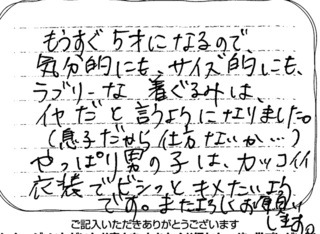 もうすぐ5才になるので、
気分的にも、サイズ的にも、
ラブリーな着ぐるみは、
イヤだと言うようになりました。
(息子だから仕方ないか…)
やっぱり男の子は、カッコイイ
衣装でビシっとキメたい様
です。また よろしくお願い
します。
ご記入いただきありがとうございます